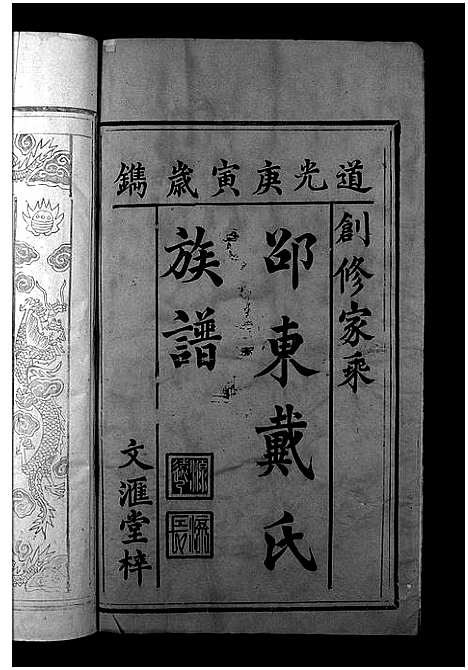 道光庚寅歲鐫
創修家乘
邵東戴氏
族譜
文滙堂梓
源遠
流長